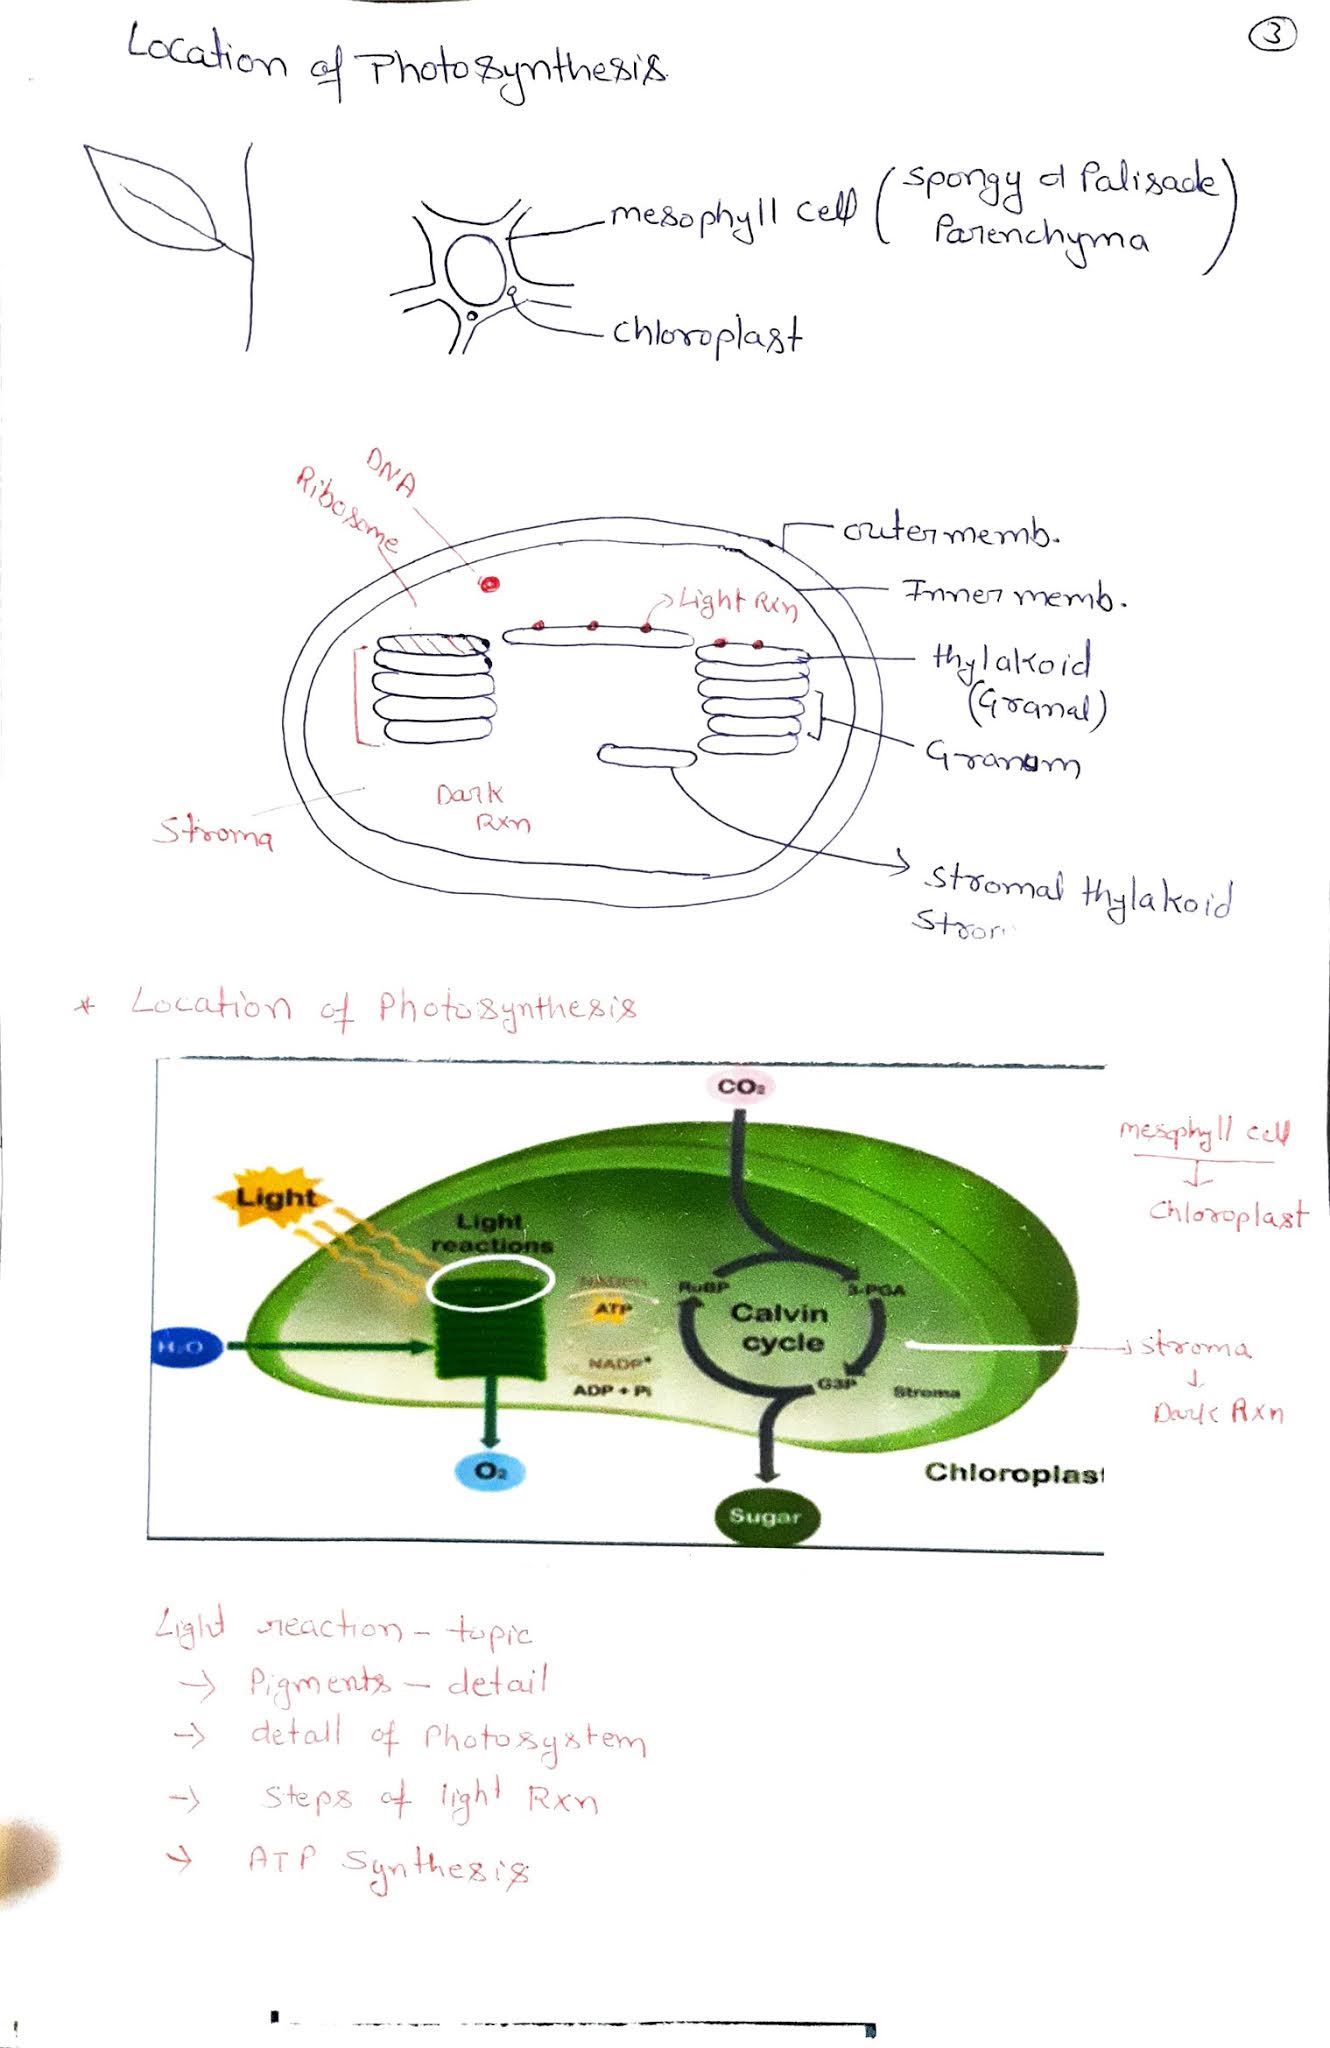 3
Location of Photosynthesis
mesophyll cell (spongy d Palisade
Parenchyma)
chloroplast
DNA
Ribosome
outer memb.
Light Rxn
Inner memb.
thylakoid
(Granal)
Granum
Dark
Rxn
Stroma
Stromal thylakoid
* Location of Photosynthesis
CO₂
mesophyll cell
↓
chloroplast
Light
Light
reactions
ATP
RuBP
3-PGA
Calvin
cycle
H₂O
NADP⁺
ADP + Pi
G3P
Stroma
→ Stroma
↓
Dark Rxn
O₂
Chloroplast
Sugar
Light reaction - topic
→ Pigments - detail
→ detail of Photosystem
→ Steps of light Rxn
→ ATP Synthesis